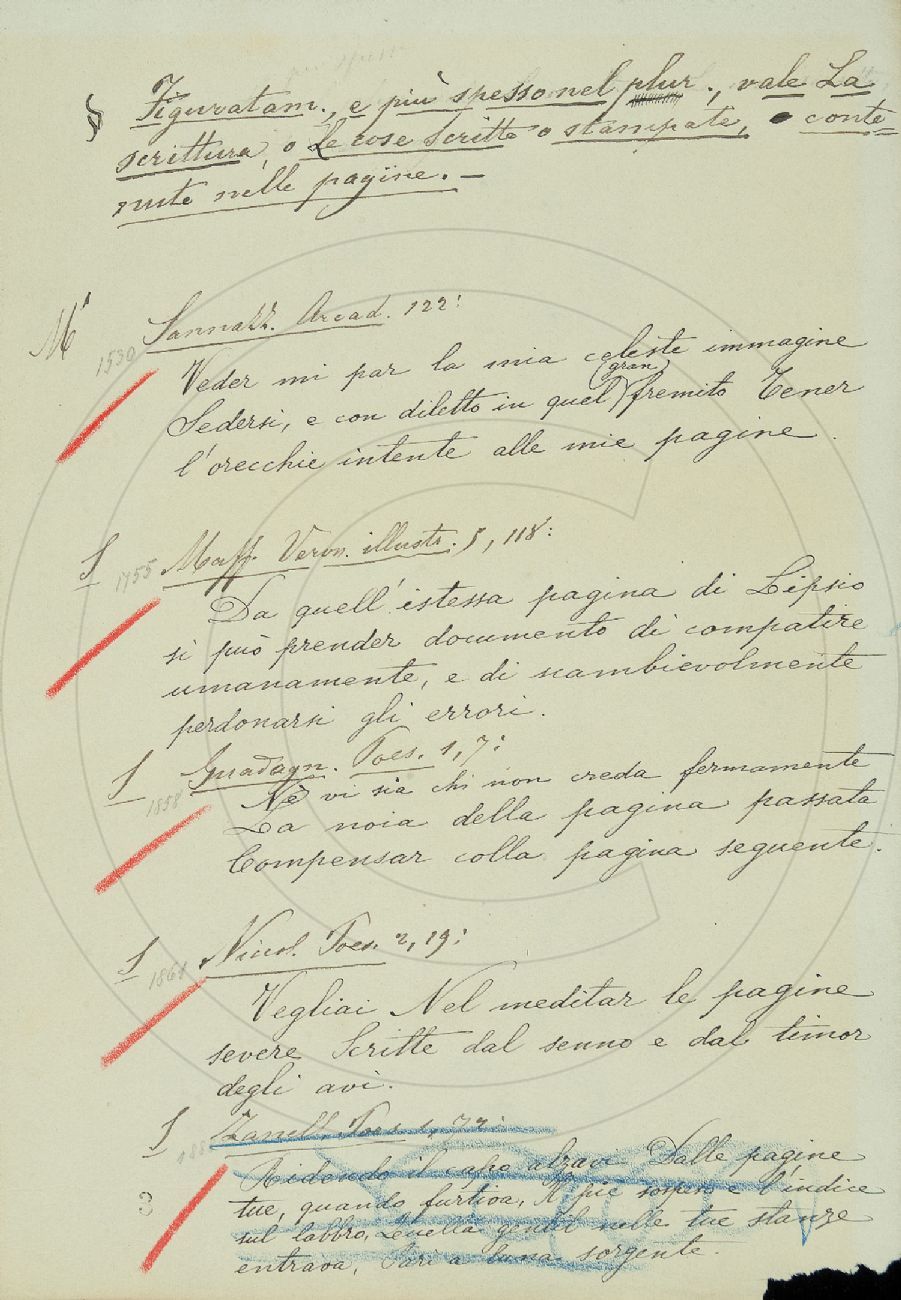 § Figuratam., e più spesso nel plur., vale La
scrittura, o Le cose scritte o stampate, o conte=
nute nelle pagine. —
Mˢ Sannazz. Arcad. 122:
1530
Veder mi par la mia celeste immagine
gran
Sedersi, e con diletto in quel fremito Tener
l'orecchie intente alle mie pagine.
S 1755 Maff. Veron. illustr. 5, 118:
Da quell'istessa pagina di Lipsio
si può prender documento di compatire
umanamente, e di scambievolmente
perdonarsi gli errori.
S Guadagn. Poes. 1, 7:
1858 Nè vi sia chi non creda fermamente
La noia della pagina passata
Compensar colla pagina seguente.
S Niccol. Poes. 2, 19:
186
Vegliai Nel meditar le pagine
severe Scritte dal senno e dal timor
degli avi.
S Zanell. Poes. 1,
188 Ridendo il capo alzavi Dalle pagine
tue, quando furtiva, Il piè sospeso e l'indice
sul labbro, Quella gentil nelle tue stanze
entrava, Pari a luna sorgente.